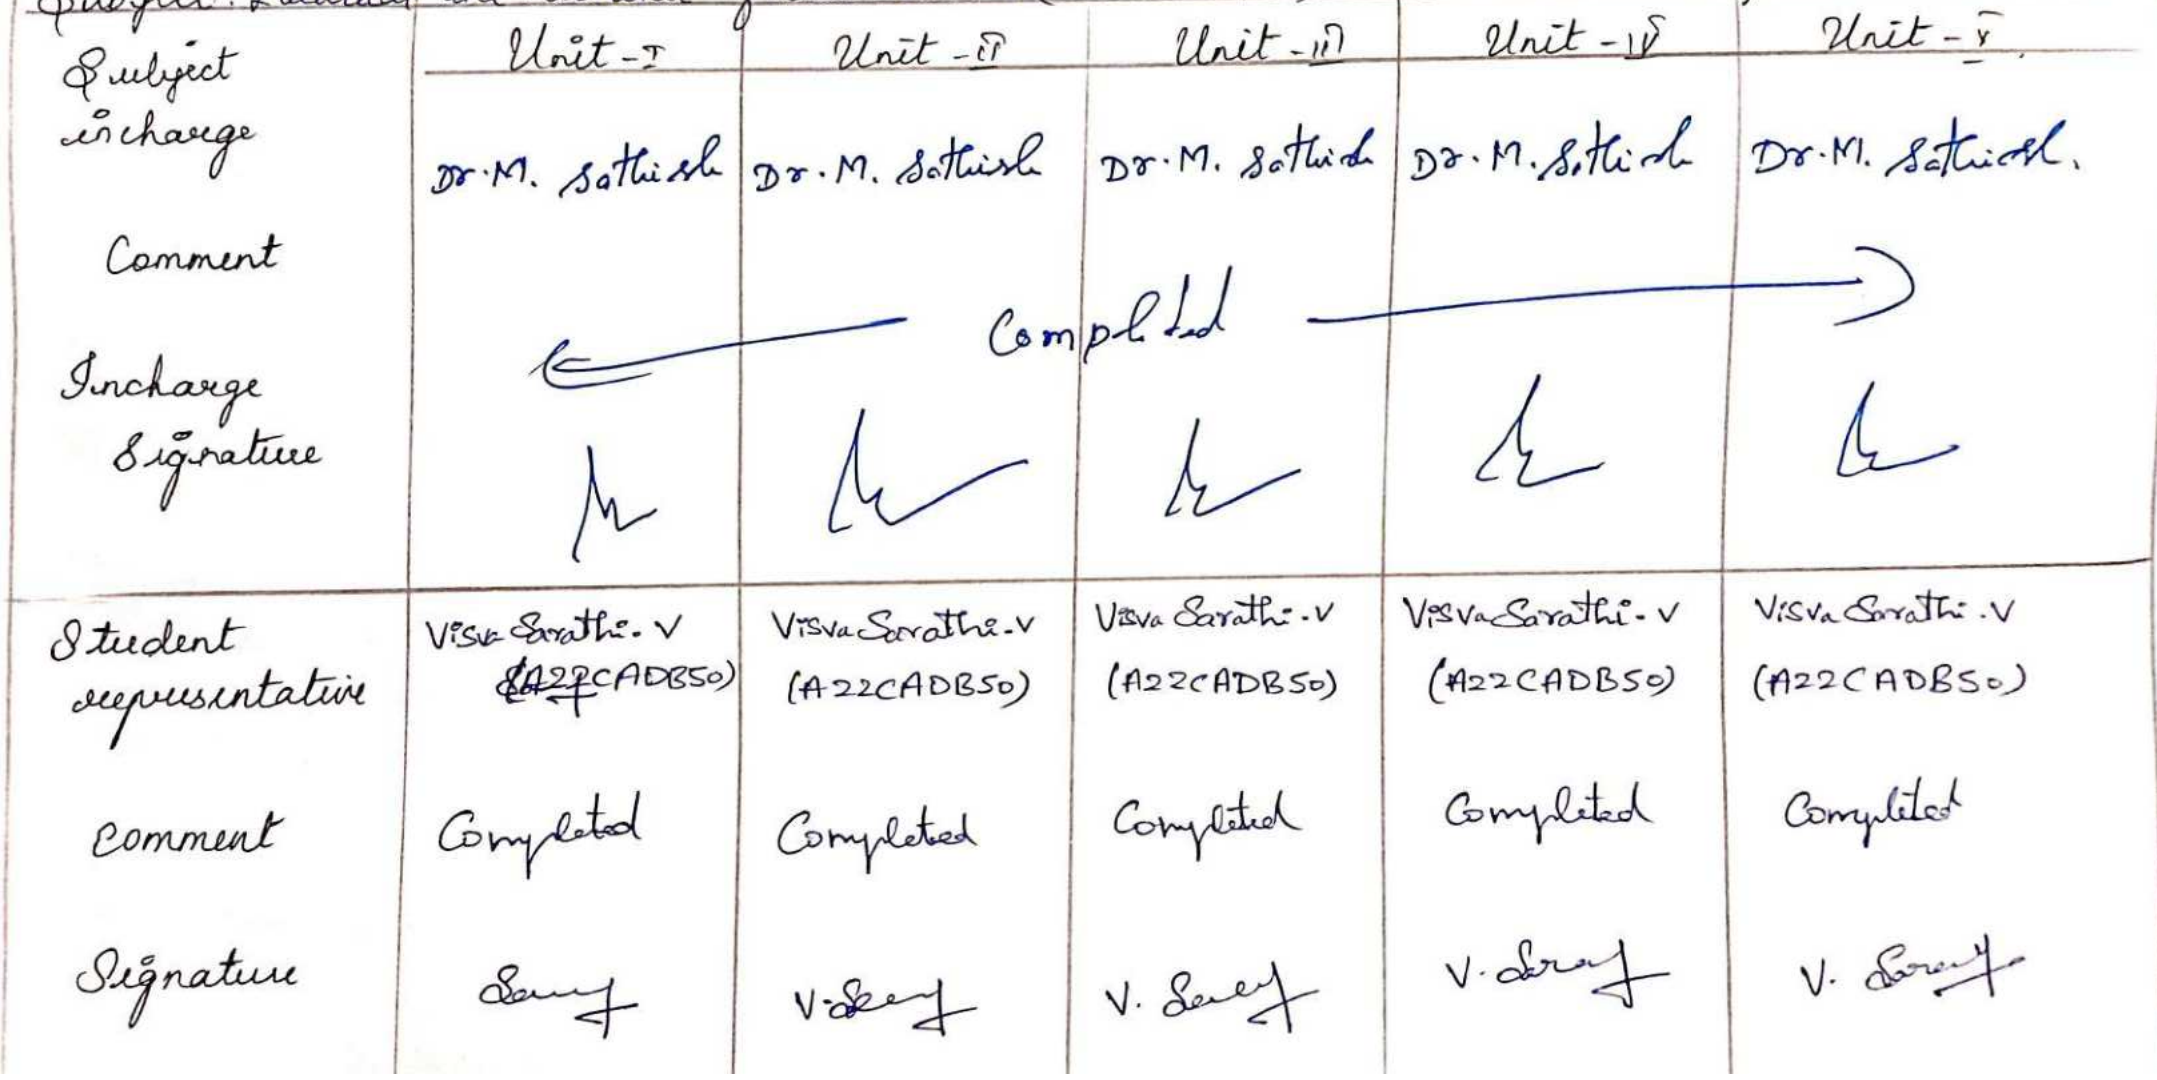 Unit - I Unit - II Unit - III Unit - IV Unit - V
Subject
incharge
Dr. M. Sathish Dr. M. Sathish Dr. M. Sathish Dr. M. Sathish Dr. M. Sathish.
Comment
Completed
Incharge
Signature
Student
representative
Visva Sarathi. V Visva Sarathi. V Visva Sarathi. V Visva Sarathi. V Visva Sarathi. V
(A22CADB50) (A22CADB50) (A22CADB50) (A22CADB50) (A22CADB50)
Comment Completed Completed Completed Completed Completed
Signature